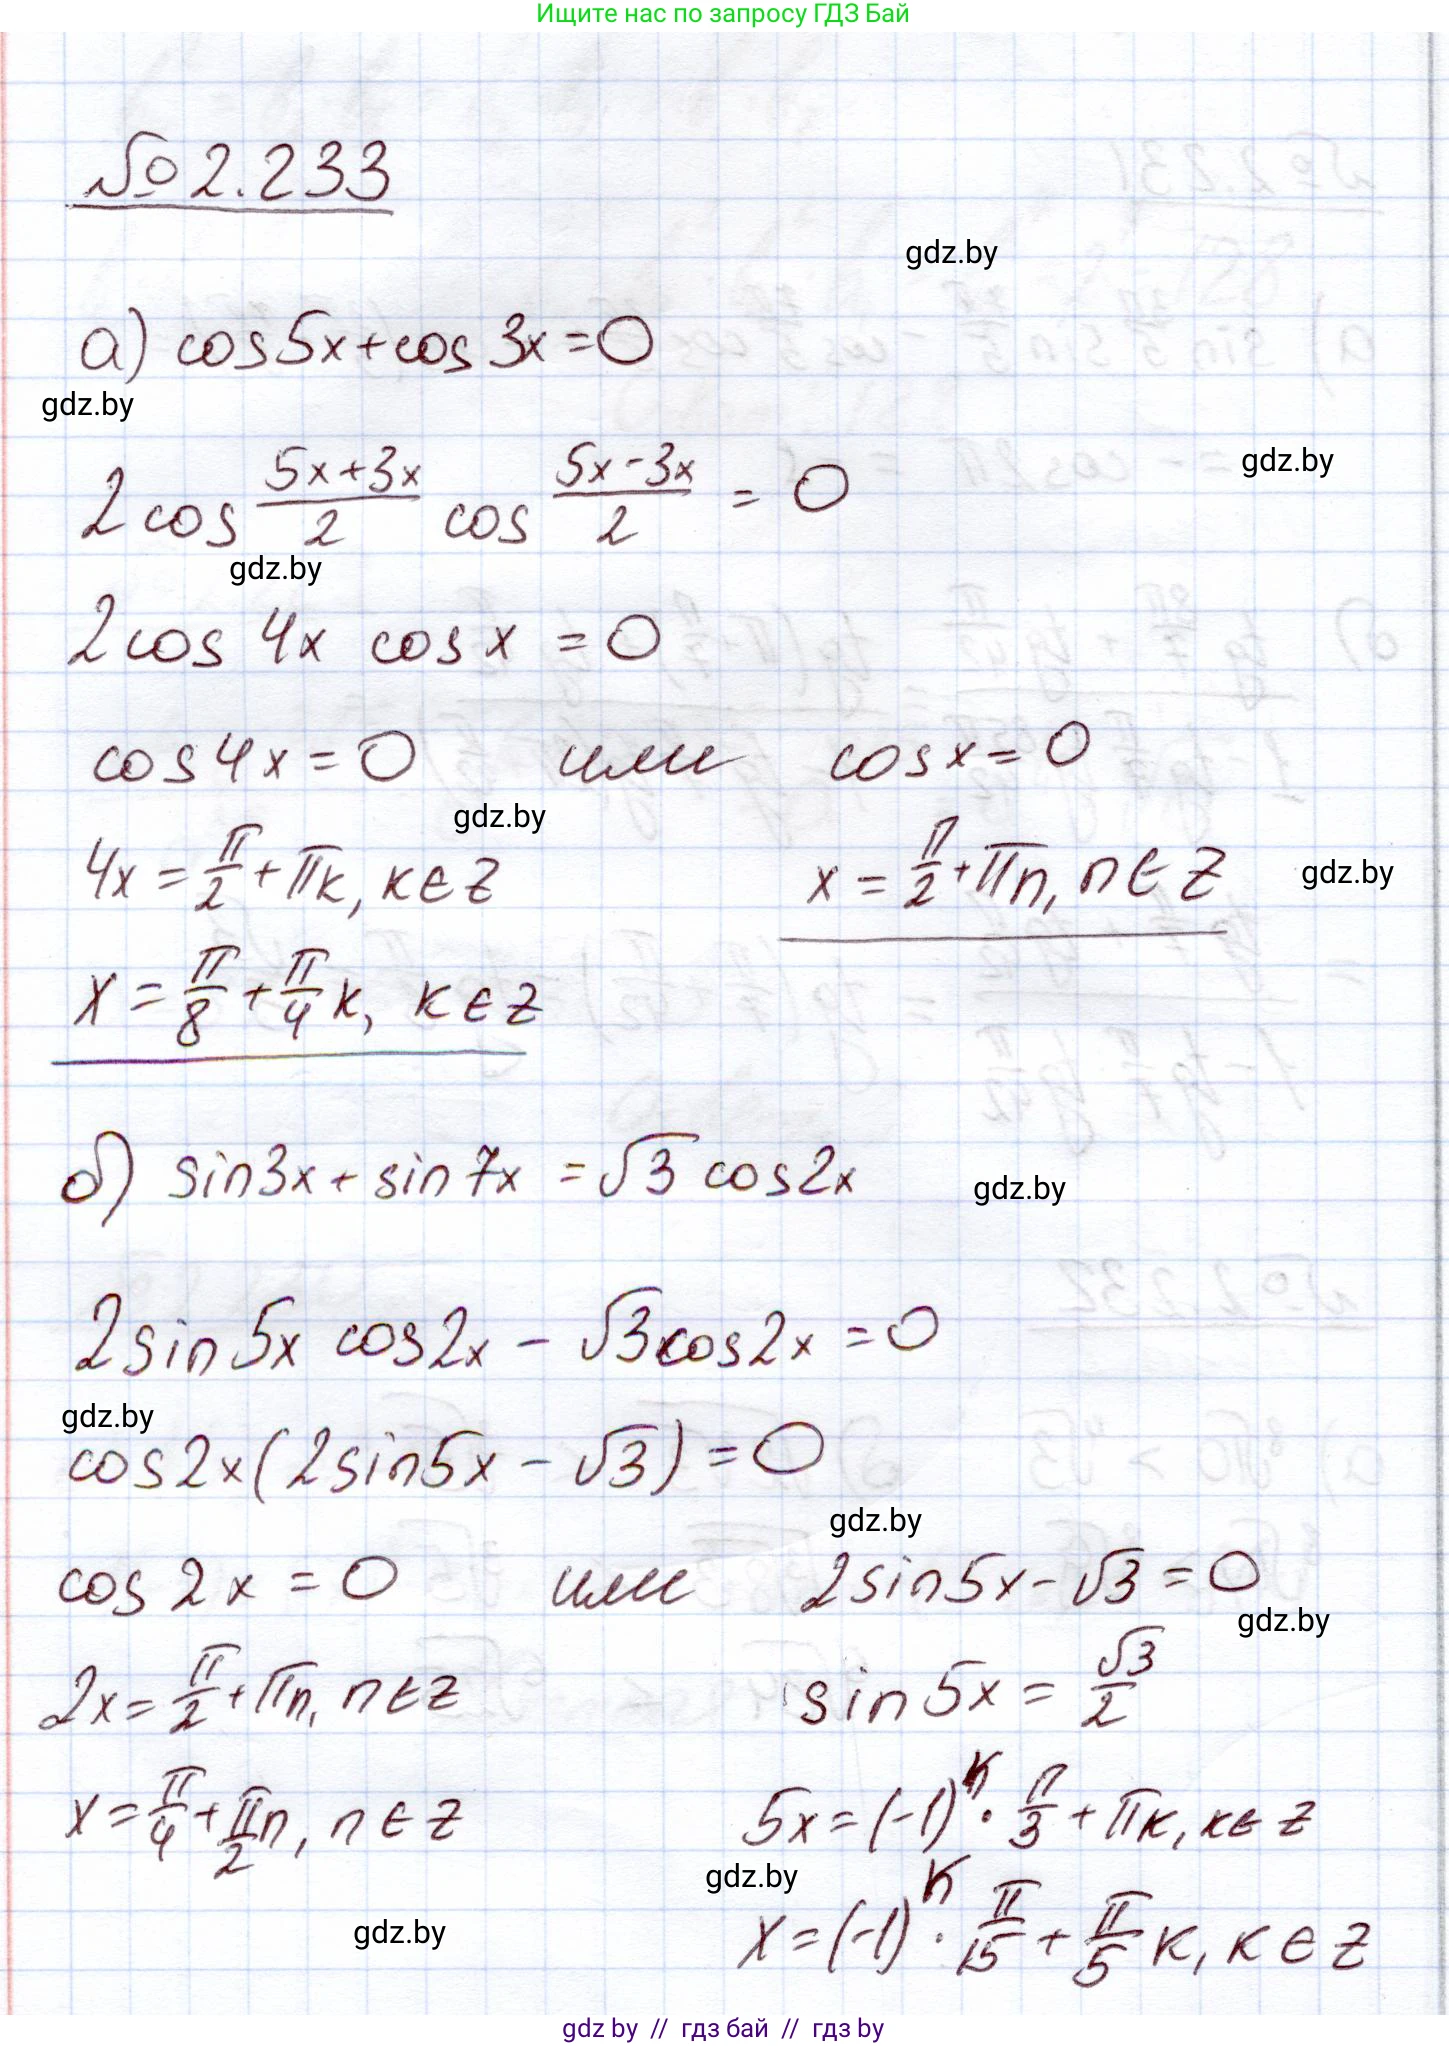 Ищите нас по запросу ГДЗ Бай
№ 2.233
gdz.by
а) cos5x + cos3x = 0
gdz.by
2cos (5x+3x)/2 cos (5x-3x)/2 = 0
gdz.by
gdz.by
2cos 4x cos x = 0
cos4x = 0 или cosx = 0
gdz.by
4x = π/2 + πk, k ∈ Z x = π/2 + πn, n ∈ Z
gdz.by
x = π/8 + π/4 k, k ∈ Z
б) sin3x + sin7x = √3 cos2x
gdz.by
2sin5x cos2x - √3cos2x = 0
gdz.by
cos2x(2sin5x - √3) = 0
gdz.by
cos2x = 0 или 2sin5x - √3 = 0
gdz.by
2x = π/2 + πn, n ∈ Z sin5x = √3/2
x = π/4 + π/2 n, n ∈ Z 5x = (-1)^k · π/3 + πk, k ∈ Z
gdz.by
gdz.by
x = (-1)^k · π/15 + π/5 k, k ∈ Z
gdz by // гдз бай // гдз by